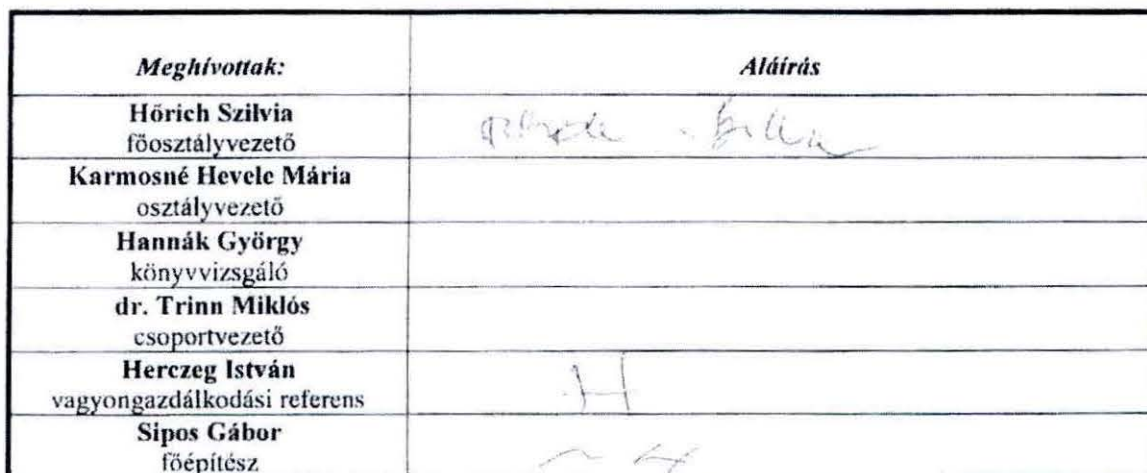 Meghívottak: Aláírás
Hőrich Szilvia
főosztályvezető
Karmosné Hevele Mária
osztályvezető
Hannák György
könyvvizsgáló
dr. Trinn Miklós
csoportvezető
Herczeg István
vagyongazdálkodási referens
H
Sipos Gábor
főépítész